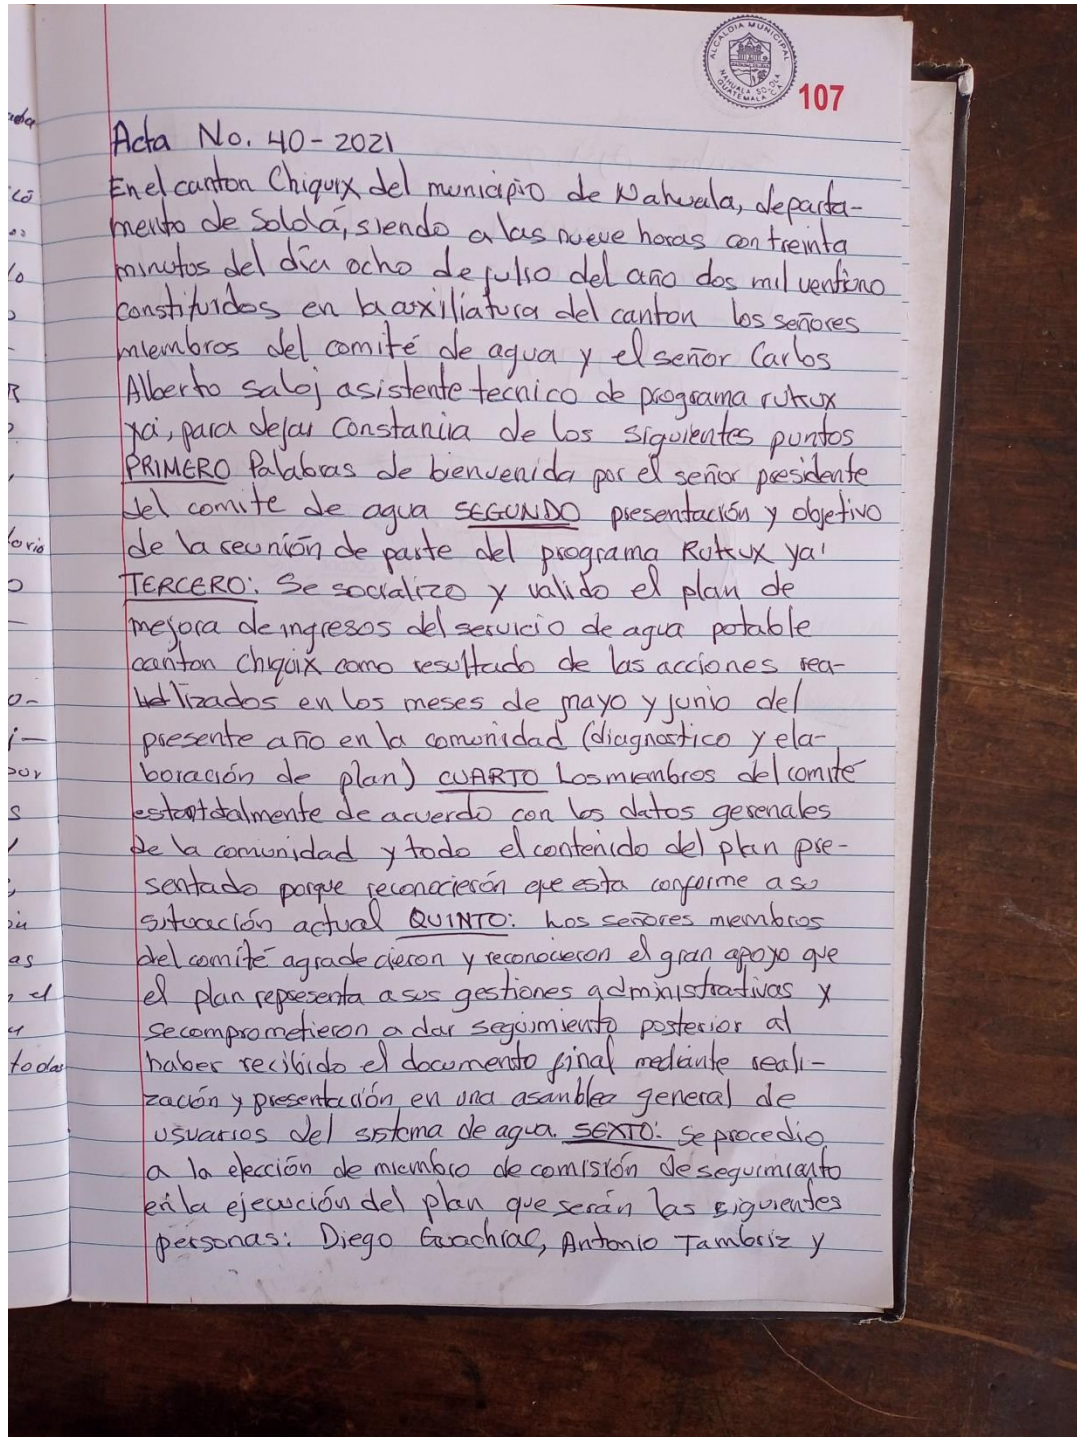 ALCALDIA MUNICIPAL
NAHUALA, SOLOLA
GUATEMALA C.A.
107
Acta No. 40-2021
En el canton Chiquix del municipio de Nahuala, departa-
mento de Sololá, siendo a las nueve horas con treinta
minutos del día ocho de julio del año dos mil ventiuno
constituidos en la auxiliatura del canton los señores
miembros del comité de agua y el señor Carlos
Alberto saloj asistente tecnico de programa rukux
ya', para dejar Constancia de los siguientes puntos
PRIMERO Palabras de bienvenida por el señor presidente
del comite de agua SEGUNDO presentación y objetivo
de la reunión de parte del programa Rukux ya'
TERCERO: Se socializo y valido el plan de
mejora de ingresos del servicio de agua potable
canton Chiquix como resultado de las acciones rea-
lizados en los meses de mayo y junio del
presente año en la comunidad (diagnostico y ela-
boración de plan) CUARTO Los miembros del comité
estan totalmente de acuerdo con los datos gerenales
de la comunidad y todo el contenido del plan pre-
sentado porque reconocierón que esta conforme a su
situación actual QUINTO: Los señores miembros
del comité agradecieron y reconocieron el gran apoyo que
el plan representa a sus gestiones administrativas y
se comprometieron a dar seguimiento posterior al
haber recibido el documento final mediante reali-
zación y presentación en una asanblea general de
usuarios del sistema de agua. SEXTO: Se procedio
a la elección de miembro de comisión de seguimiento
en la ejecución del plan que serán las siguientes
personas: Diego Guachiac, Antonio Tambriz y